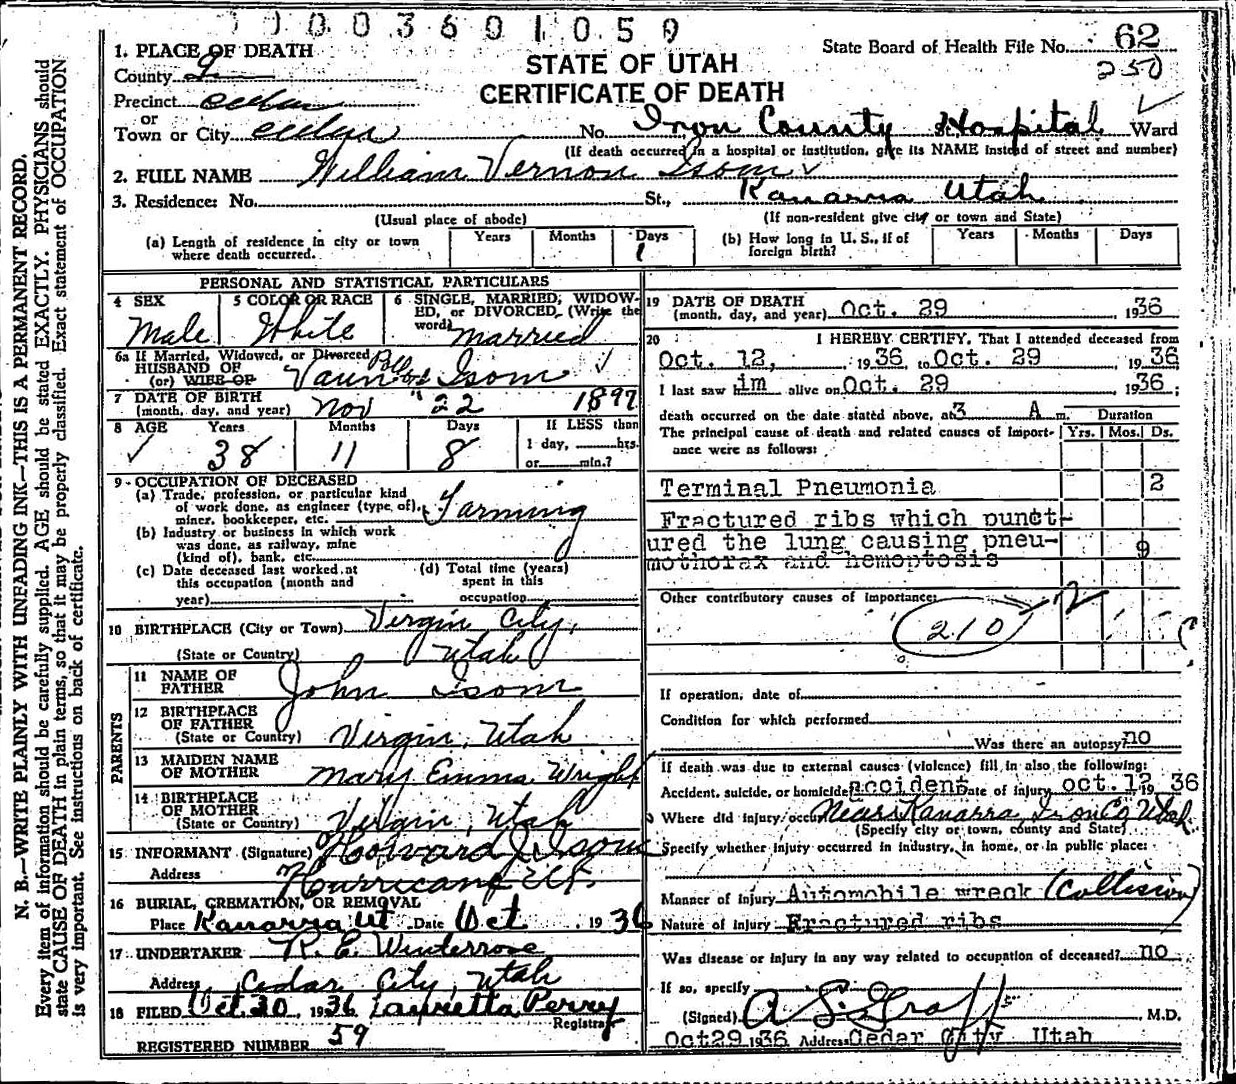 0003601059
1. PLACE OF DEATH
County
Precinct Cedar
or
Town or City Cedar
STATE OF UTAH
CERTIFICATE OF DEATH
State Board of Health File No. 62
250
No. Iron County Hospital St. Ward
(If death occurred in a hospital or institution, give its NAME instead of street and number)
2. FULL NAME William Vernon Isom
3. Residence: No. St., Kanarra Utah
(Usual place of abode) (If non-resident give city or town and State)
(a) Length of residence in city or town where death occurred. Years Months Days 1
(b) How long in U. S., if of foreign birth? Years Months Days
PERSONAL AND STATISTICAL PARTICULARS
4 SEX Male
5 COLOR OR RACE White
6 SINGLE, MARRIED, WIDOWED, or DIVORCED, (Write the word) married
6a If Married, Widowed, or Divorced
HUSBAND OF
(or) WIFE OF Isom
7 DATE OF BIRTH
(month, day, and year) Nov 22 1897
8 AGE Years 38 Months 11 Days 8 If LESS than 1 day, hrs. or min.?
9 OCCUPATION OF DECEASED
(a) Trade, profession, or particular kind of work done, as engineer (type of), miner, bookkeeper, etc. Farming
(b) Industry or business in which work was done, as railway, mine (kind of), bank, etc.
(c) Date deceased last worked at this occupation (month and year)
(d) Total time (years) spent in this occupation
10 BIRTHPLACE (City or Town) Virgin City,
(State or Country) Utah
PARENTS
11 NAME OF FATHER John Isom
12 BIRTHPLACE OF FATHER
(State or Country) Virgin, Utah
13 MAIDEN NAME OF MOTHER Mary Emma Wright
14 BIRTHPLACE OF MOTHER
(State or Country) Virgin, Utah
15 INFORMANT (Signature) Howard J. Isom
Address Hurricane Ut.
16 BURIAL, CREMATION, OR REMOVAL
Place Kanarra Ut Date Oct 1936
17 UNDERTAKER R. E. Winterrose
Address Cedar City, Utah
18 FILED Oct. 30, 1936 Lauretta Perry
Registrar
REGISTERED NUMBER 59
19 DATE OF DEATH
(month, day, and year) Oct. 29, 1936
20 I HEREBY CERTIFY, That I attended deceased from
Oct. 12, 1936, to Oct. 29 1936
I last saw im alive on Oct. 29 1936;
death occurred on the date stated above, at 3 A m. Duration
The principal cause of death and related causes of importance were as follows: Yrs. Mos. Ds.
Terminal Pneumonia 2
Fractured ribs which punct-
ured the lung causing pneu- 9
mothorax and hemoptosis
Other contributory causes of importance:
210
If operation, date of
Condition for which performed
Was there an autopsy? no
If death was due to external causes (violence) fill in also the following:
Accident, suicide, or homicide accident Date of injury oct. 12 1936
Where did injury occur Near Kanarra, Iron Co Utah
(Specify city or town, county and State)
Specify whether injury occurred in industry, in home, or in public place:
Manner of Injury Automobile wreck (Collision)
Nature of Injury Fractured ribs
Was disease or injury in any way related to occupation of deceased? no
If so, specify
(Signed) A S. Graff, M.D.
Oct 29 1936 Address Cedar City Utah
N. B.—WRITE PLAINLY WITH UNFADING INK—THIS IS A PERMANENT RECORD.
Every item of information should be carefully supplied. AGE should be stated EXACTLY. PHYSICIANS should
state CAUSE OF DEATH in plain terms, so that it may be properly classified. Exact statement of OCCUPATION
is very important. See instructions on back of certificate.